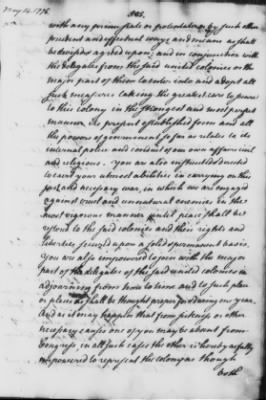 May 14. 1776.
305.
with any prince state or potentate or by such other
prudent and effectual ways and means as shall
be devised & agreed upon; and in conjunction with
the delegates from the said united colonies or the
major part of them to enter into and adopt all
such measures taking the greatest care to secure
to this colony in the strongest and most perfect
manner its present established form and all
the powers of government so far as relates to its
internal police and conduct of our own affairs civil
and religious. You are also instructed & directed
to exert your utmost abilities in carrying on this
just and necessary war, in which we are engaged
against cruel and unnatural enemies in the
most vigorous manner until peace shall be
restored to the said colonies and their rights and
liberties secured upon a solid & permanent basis.
You are also empowered to join with the major
part of the delegates of the said united colonies in
adjourning from time to time and to such place
or places as shall be thought proper for & during one year.
And as it may happen that from sickness or other
necessary causes one of you may be absent from
Congress, in all such cases the other is hereby as fully
empowered to represent the colony as though
both